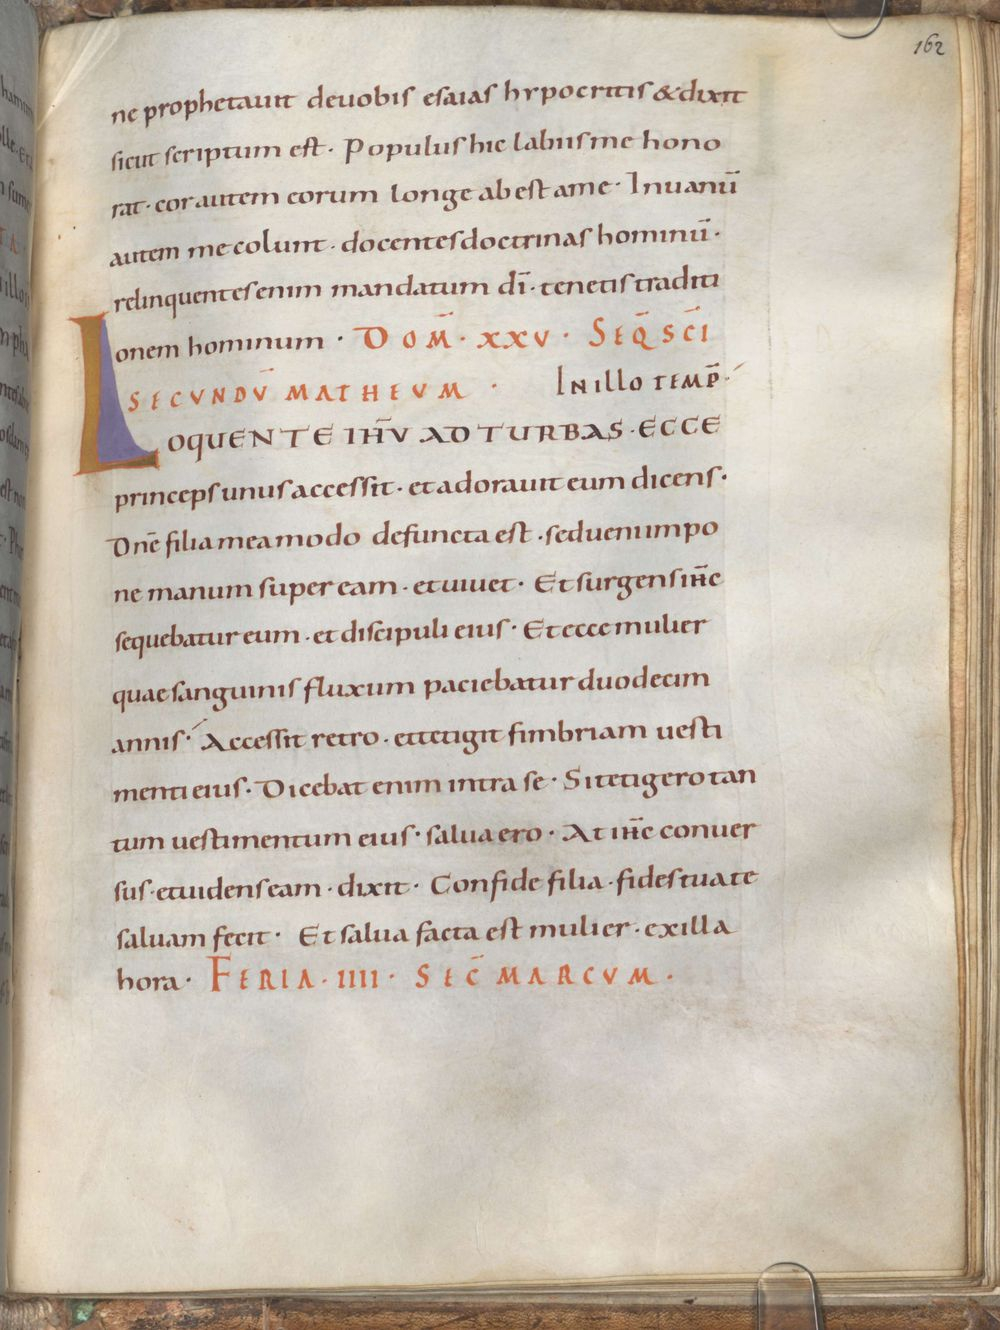 162
ne prophetauit deuobis esaias hypocritis & dixit
sicut scriptum est · Populus hic labiis me hono
rat · cor autem eorum longe ab est ame · In uanū
autem me colunt · docentes doctrinas hominū ·
relinquentes enim mandatum dī · tenetis traditi
onem hominum · DOM̄ · XXV · SEQ̄ SC̄I
SECUNDŪ MATHEUM · IN illo TEMP̄ ·
LOQUENTE IHŪ AD TURBAS · ECCE
princeps unus accessit · et adorauit eum dicens ·
Dnē filia mea modo defuncta est · sed ueni impo
ne manum super eam · et uiuet · Et surgens ihc̄
sequebatur eum · et discipuli eius · Et ecce mulier
quae sanguinis fluxum paciebatur duodecim
annis · Accessit retro · et tetigit fimbriam uesti
menti eius · Dicebat enim intra se · Si tetigero tan
tum uestimentum eius · salua ero · At ihc̄ conuer
sus · et uidens eam · dixit · Confide filia · fides tua te
saluam fecit · Et salua facta est mulier · ex illa
hora · FERIA · IIII · SEC̄ MARCUM ·